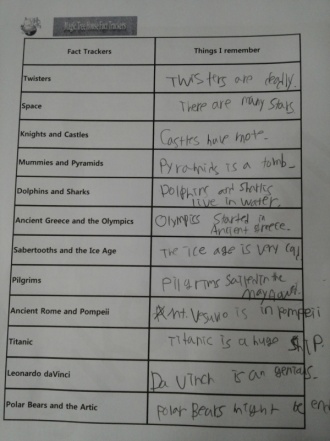 Fact Trackers Things I remember
Twisters Twisters are deadly.
Space There are many stars
Knights and Castles Castles have mote.
Mummies and Pyramids Pyramids is a tomb.
Dolphins and Sharks Dolphins and Sharks
live in water.
Ancient Greece and the Olympics Olympics Started in
Ancient Greece.
Sabertooths and the Ice Age The ice age is very
Pilgrims Pilgrims Sailed in the
Ancient Rome and Pompeii is in Pompeii
Titanic Titanic is a huge ship.
Leonardo daVinci Da Vinch is an genius.
Polar Bears and the Artic Polar Bears might be en